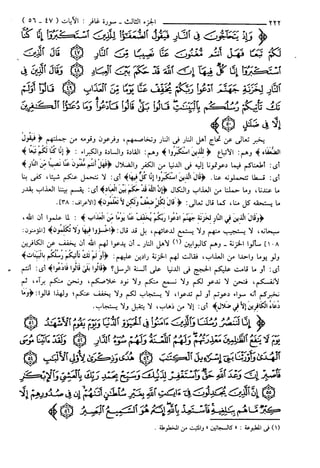 ٢٢٢ الجزء الثالث - سورة غافر : الآيات ( ٤٧ - ٥٦ )
﴿ وَإِذْ يَتَحَاجُّونَ فِي النَّارِ فَيَقُولُ الضُّعَفَاءُ لِلَّذِينَ اسْتَكْبَرُوا إِنَّا كُنَّا
لَكُمْ تَبَعًا فَهَلْ أَنتُم مُّغْنُونَ عَنَّا نَصِيبًا مِّنَ النَّارِ ﴿٤٧﴾ قَالَ الَّذِينَ اسْتَكْبَرُوا
إِنَّا كُلٌّ فِيهَا إِنَّ اللَّهَ قَدْ حَكَمَ بَيْنَ الْعِبَادِ ﴿٤٨﴾ وَقَالَ الَّذِينَ فِي
النَّارِ لِخَزَنَةِ جَهَنَّمَ ادْعُوا رَبَّكُمْ يُخَفِّفْ عَنَّا يَوْمًا مِّنَ الْعَذَابِ ﴿٤٩﴾
قَالُوا أَوَلَمْ تَكُ تَأْتِيكُمْ رُسُلُكُم بِالْبَيِّنَاتِ قَالُوا بَلَىٰ قَالُوا فَادْعُوا وَمَا دُعَاءُ الْكَافِرِينَ
إِلَّا فِي ضَلَالٍ ﴿٥٠﴾
يخبر تعالى عن تحاج أهل النار في النار وتخاصمهم، وفرعون وقومه من جملتهم ﴿ فَيَقُولُ
الضُّعَفَاءُ ﴾ وهم: الأتباع ﴿ لِلَّذِينَ اسْتَكْبَرُوا ﴾ وهم: القادة والسادة والكبراء : ﴿ إِنَّا كُنَّا لَكُمْ تَبَعًا ﴾
أي: أطعناكم فيما دعوتمونا إليه في الدنيا من الكفر والضلال ﴿ فَهَلْ أَنتُم مُّغْنُونَ عَنَّا نَصِيبًا مِّنَ النَّارِ ﴾
أي: قسطًا تتحملونه عنا. ﴿ قَالَ الَّذِينَ اسْتَكْبَرُوا إِنَّا كُلٌّ فِيهَا ﴾ أي: لا نتحمل عنكم شيئا، كفى بنا
ما عندنا، وما حملنا من العذاب والنكال ﴿ إِنَّ اللَّهَ قَدْ حَكَمَ بَيْنَ الْعِبَادِ ﴾ أي: يقسم بيننا العذاب بقدر
ما يستحقه كل منا، كما قال تعالى: ﴿ قَالَ لِكُلٍّ ضِعْفٌ وَلَٰكِن لَّا تَعْلَمُونَ ﴾ [الأعراف: ٣٨].
﴿ وَقَالَ الَّذِينَ فِي النَّارِ لِخَزَنَةِ جَهَنَّمَ ادْعُوا رَبَّكُمْ يُخَفِّفْ عَنَّا يَوْمًا مِّنَ الْعَذَابِ ﴾ : لما علموا أن الله،
سبحانه، لا يستجيب منهم ولا يستمع لدعائهم، بل قد قال: ﴿ اخْسَئُوا فِيهَا وَلَا تُكَلِّمُونِ ﴾ [المؤمنون:
١٠٨] سألوا الخزنة - وهم كالبوابين (١) لأهل النار - أن يدعوا لهم الله أن يخفف عن الكافرين
ولو يوما واحدا من العذاب، فقالت لهم الخزنة رادين عليهم: ﴿ أَوَلَمْ تَكُ تَأْتِيكُمْ رُسُلُكُم بِالْبَيِّنَاتِ ﴾
أي: أو ما قامت عليكم الحجج في الدنيا على ألسنة الرسل؟ ﴿ قَالُوا بَلَىٰ قَالُوا فَادْعُوا ﴾ أي: أنتم
لأنفسكم، فنحن لا ندعو لكم ولا نسمع منكم ولا نود خلاصكم، ونحن منكم برآء، ثم
نخبركم أنه سواء دعوتم أو لم تدعوا، لا يستجاب لكم ولا يخفف عنكم؛ ولهذا قالوا: ﴿ وَمَا
دُعَاءُ الْكَافِرِينَ إِلَّا فِي ضَلَالٍ ﴾ أي: إلا من ذهاب، لا يتقبل ولا يستجاب.
﴿ إِنَّا لَنَنصُرُ رُسُلَنَا وَالَّذِينَ آمَنُوا فِي الْحَيَاةِ الدُّنْيَا وَيَوْمَ يَقُومُ الْأَشْهَادُ ﴿٥١﴾
يَوْمَ لَا يَنفَعُ الظَّالِمِينَ مَعْذِرَتُهُمْ وَلَهُمُ اللَّعْنَةُ وَلَهُمْ سُوءُ الدَّارِ ﴿٥٢﴾ وَلَقَدْ آتَيْنَا
مُوسَى الْهُدَىٰ وَأَوْرَثْنَا بَنِي إِسْرَائِيلَ الْكِتَابَ ﴿٥٣﴾ هُدًى وَذِكْرَىٰ لِأُولِي الْأَلْبَابِ ﴿٥٤﴾
فَاصْبِرْ إِنَّ وَعْدَ اللَّهِ حَقٌّ وَاسْتَغْفِرْ لِذَنبِكَ وَسَبِّحْ بِحَمْدِ رَبِّكَ بِالْعَشِيِّ وَالْإِبْكَارِ
﴿٥٥﴾ إِنَّ الَّذِينَ يُجَادِلُونَ فِي آيَاتِ اللَّهِ بِغَيْرِ سُلْطَانٍ أَتَاهُمْ إِن فِي صُدُورِهِمْ إِلَّا
كِبْرٌ مَّا هُم بِبَالِغِيهِ فَاسْتَعِذْ بِاللَّهِ إِنَّهُ هُوَ السَّمِيعُ الْبَصِيرُ ﴿٥٦﴾
(١) في المطبوعة : « كالسجانين » والمثبت من المخطوطة .